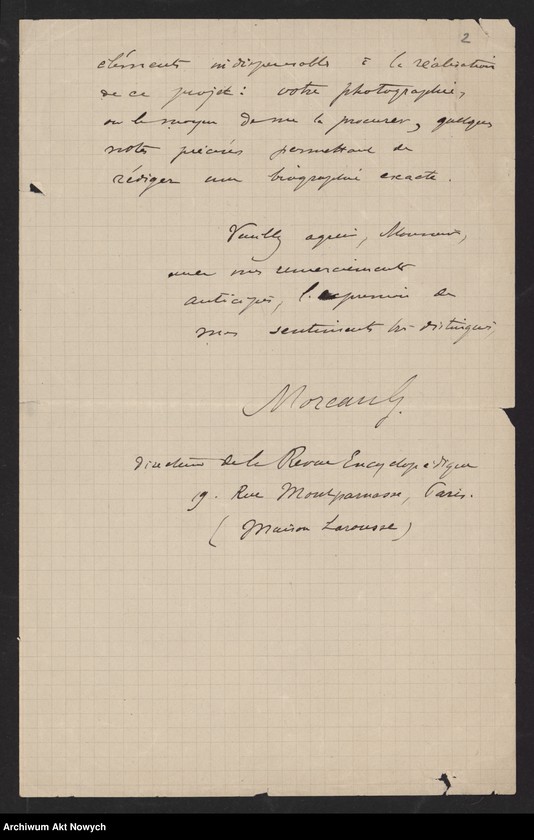 2
éléments indispensables à la réalisation
de ce projet : votre photographie,
ou le moyen de me la procurer, quelques
notes précises permettant de
rédiger une biographie exacte.
Veuillez agréer, Monsieur,
avec mes remerciements
anticipés, l'expression de
mes sentiments très distingués,
Moreau G.
directeur de la Revue Encyclopédique
19. Rue Montparnasse, Paris.
(Maison Larousse)
Archiwum Akt Nowych